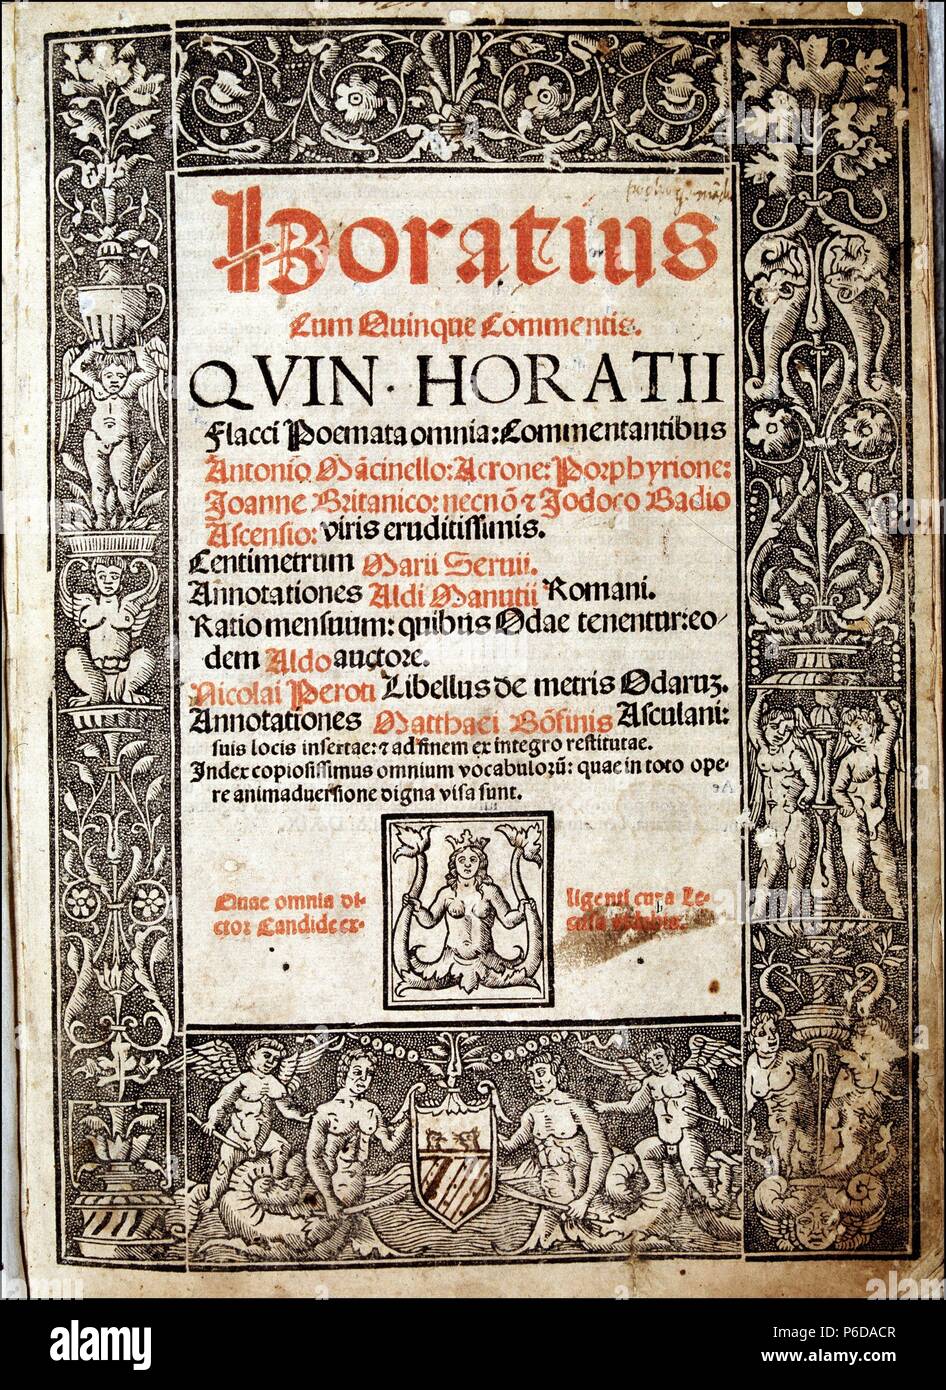 Horatius
Cum Quinque Commentis.
QVIN · HORATII
Flacci Poemata omnia: Commentantibus
Antonio Mācinello: Acrone: Porphyrione:
Joanne Britanico: necnō & Jodoco Badio
Ascensio: viris eruditissimis.
Centimetrum Marii Seruii.
Annotationes Aldi Manutii Romani.
Ratio mensuum: quibus Odae tenentur: eo/
dem Aldo auctore.
Nicolai Peroti Libellus de metris Odaruꝫ.
Annotationes Matthaei Bōfinis Asculani:
suis locis insertae: & ad finem ex integro restitutae.
Index copiosissimus omnium vocabulorū: quae in toto ope-
re animaduersione digna visa sunt.
Quae omnia di-
ctor Candide ex-
ligenti cura Le-
alamy
alamy
Image ID: P6DACR
www.alamy.com